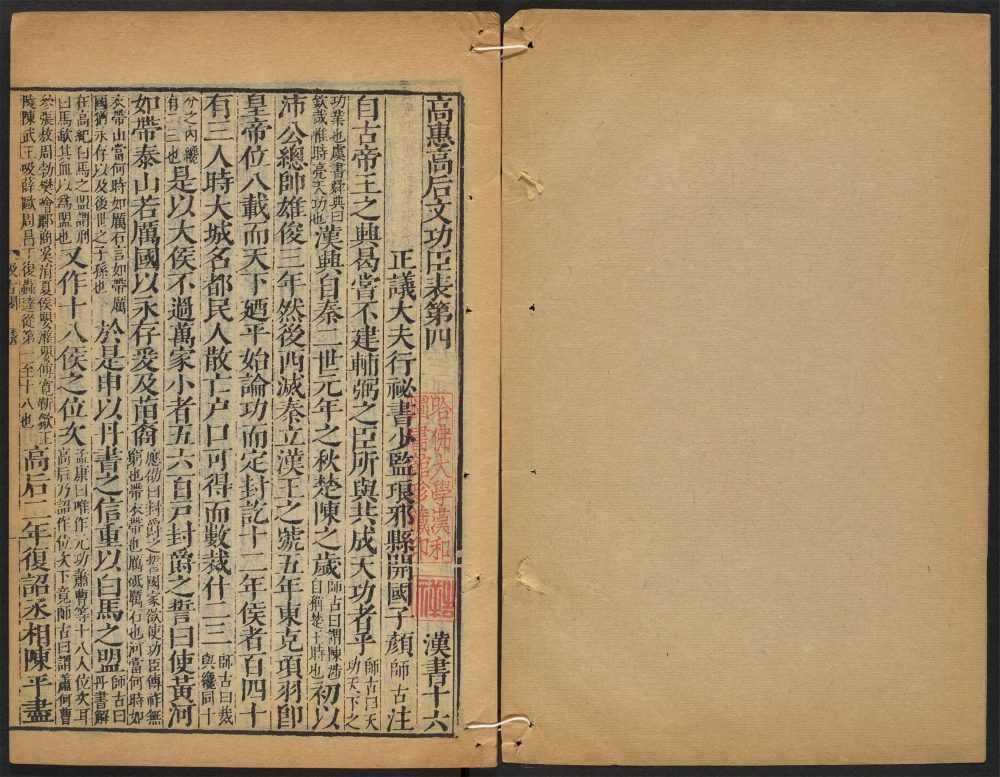 高惠高后文功臣表第四　漢書十六
正議大夫行祕書少監琅邪縣開國子顏師古注
自古帝王之興曷嘗不建輔弼之臣所與共成天功者乎師古曰天功天下之
功業也虞書舜典曰欽哉惟時亮天功也漢興自秦二世元年之秋楚陳之歲師古曰謂陳涉自稱楚王時也初以
沛公總帥雄俊三年然後西滅秦立漢王之號五年東克項羽即
皇帝位八載而天下迺平始論功而定封訖十二年侯者百四十
有三人時大城名都民人散亡户口可得而數裁什二三師古曰裁與纔同十
分之內纔有二三也是以大侯不過萬家小者五六百戸封爵之誓曰使黃河
如帶泰山若厲國以永存爰及苗裔應劭曰封爵之誓國家欲使功臣傳祚無窮也帶衣帶也厲砥厲石也河當何時如
衣帶山當何時如厲石言如帶厲國猶永存以及後世之子孫也於是申以丹書之信重以白馬之盟師古曰丹書解
在高紀白馬之盟謂刑白馬歃其血以為盟也又作十八侯之位次孟康曰唯作元功蕭曹等十八人位次耳高后乃詔作位次下竟師古曰謂蕭何曹
參張敖周勃樊噲酈商奚涓夏侯嬰灌嬰傅寛靳歙王陵陳武王吸薛歐周昌丁復蟲達從第一至十八也高后二年復詔丞相陳平盡
哈佛大學漢和圖書館珍藏印